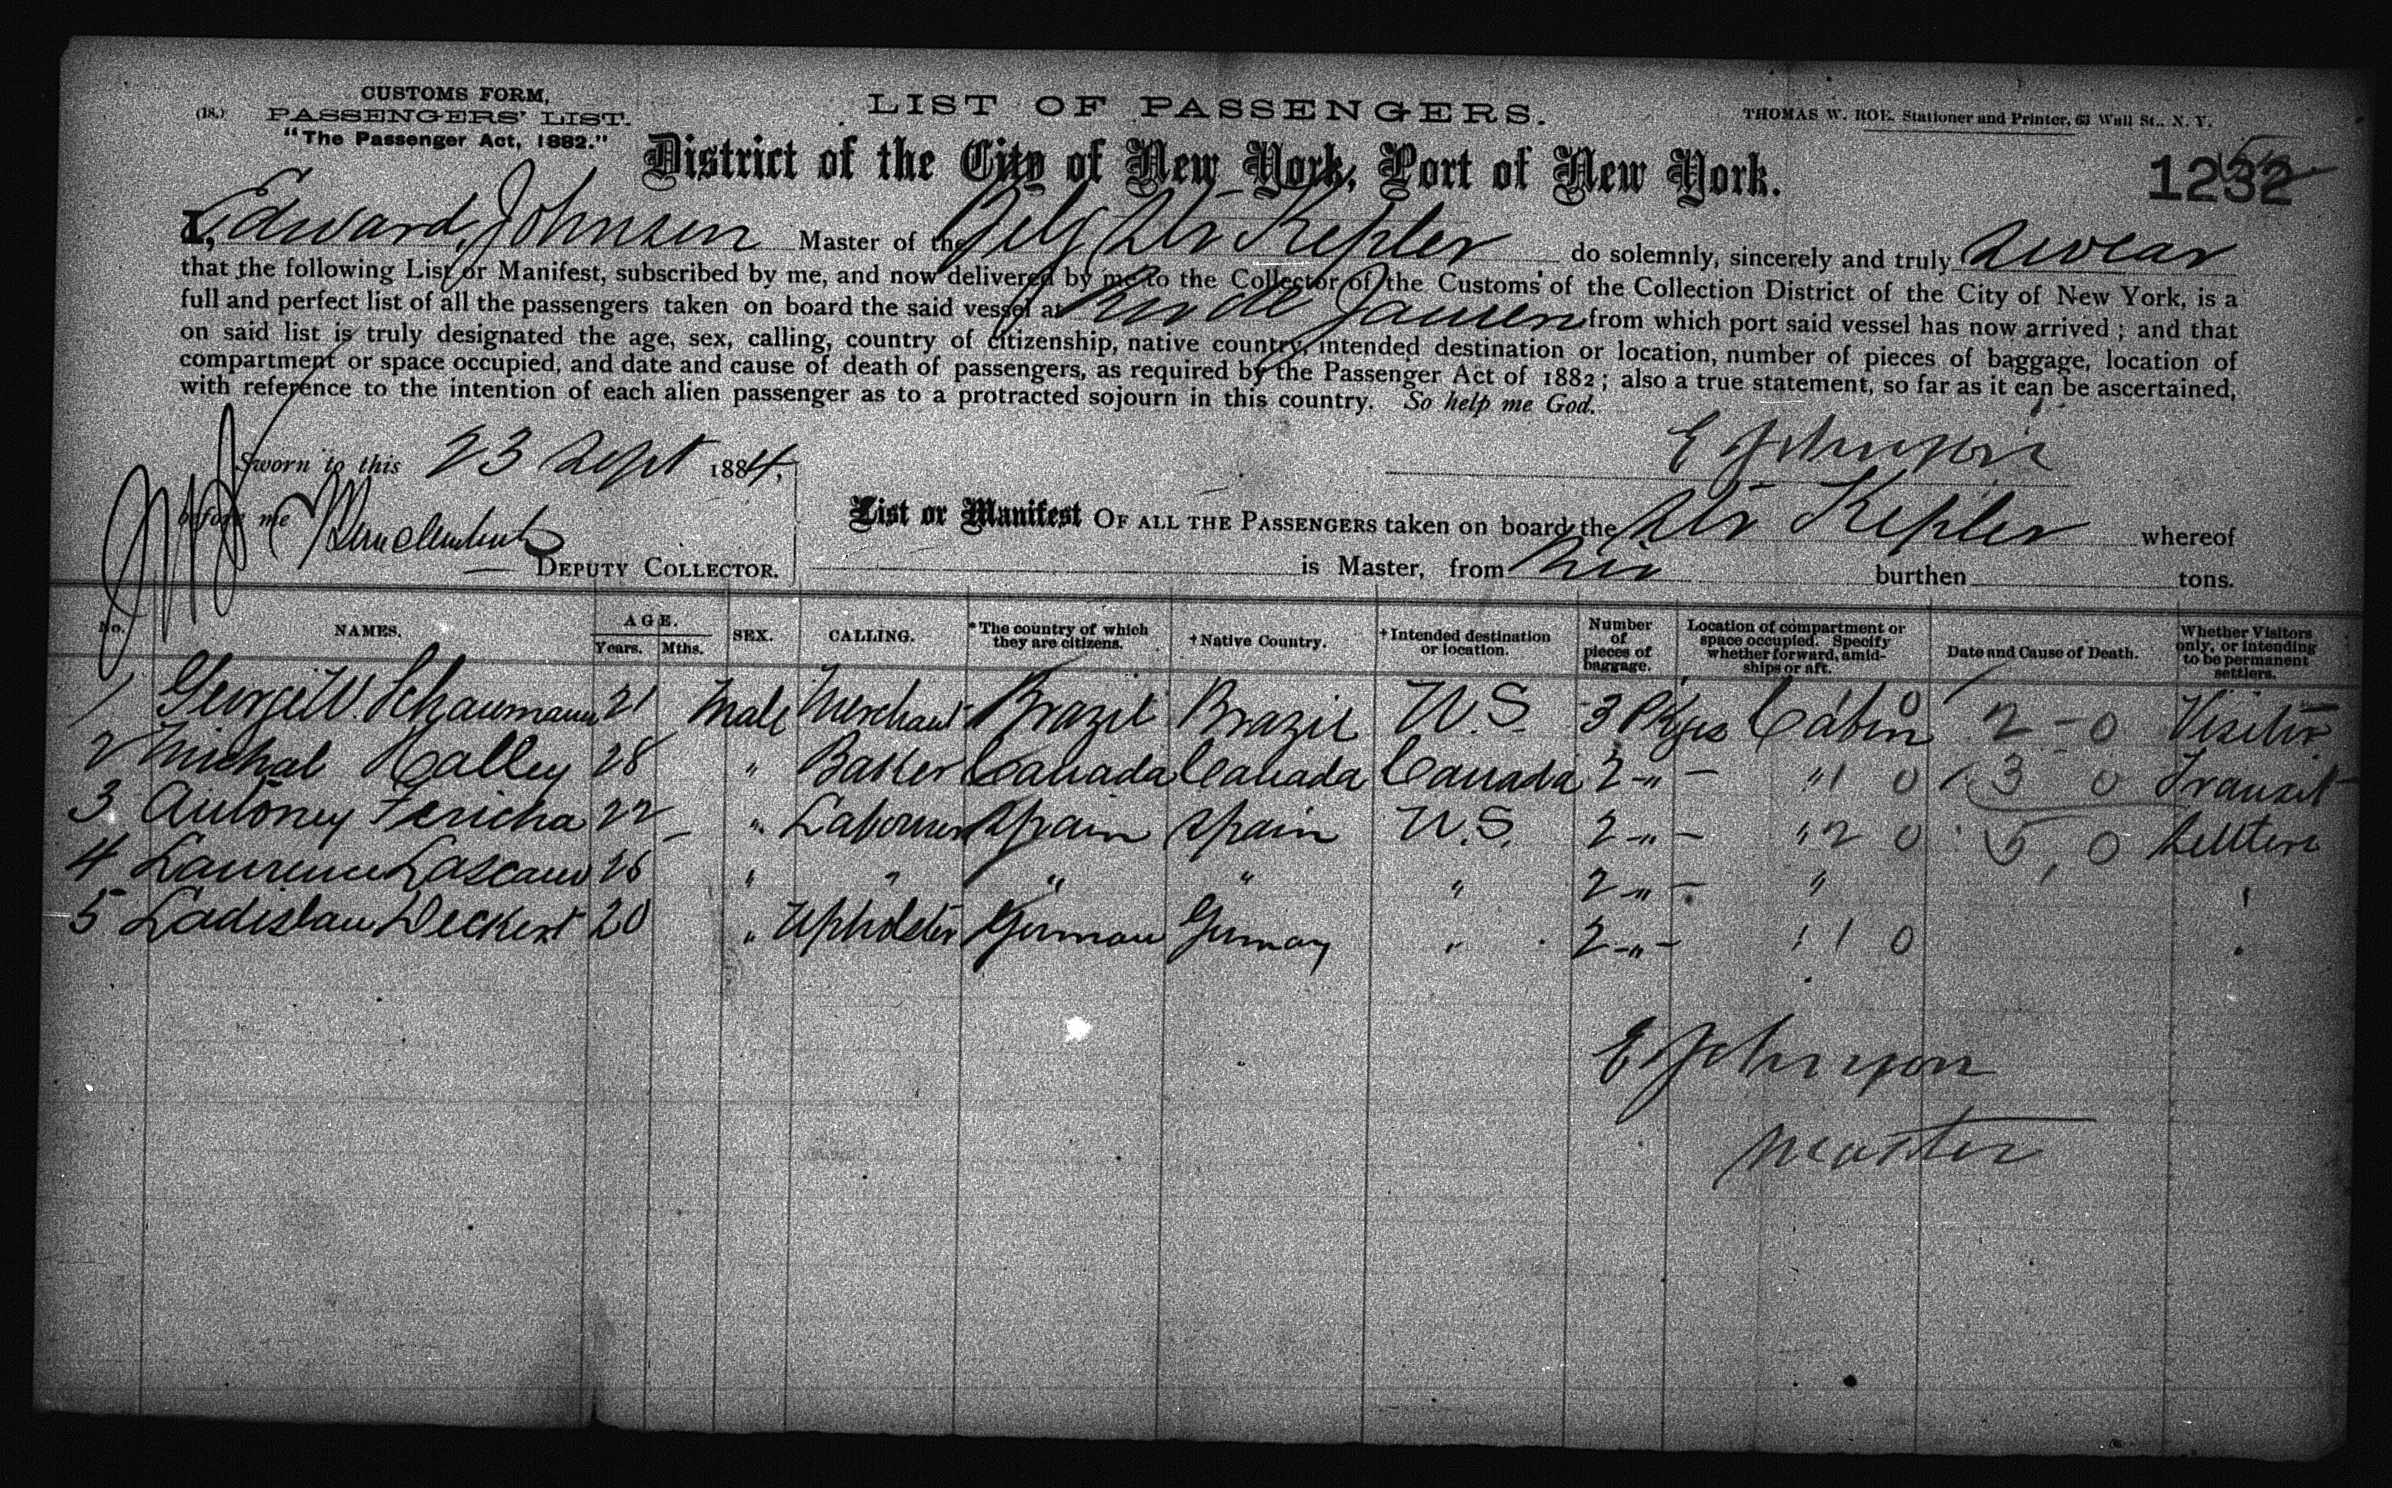 CUSTOMS FORM,
(18.) PASSENGERS' LIST.
"The Passenger Act, 1882."
LIST OF PASSENGERS.
THOMAS W. ROE, Stationer and Printer, 63 Wall St., N. Y.
District of the City of New York, Port of New York.
1232
I, Edward Johnson Master of the Str Kepler do solemnly, sincerely and truly swear
that the following List or Manifest, subscribed by me, and now delivered by me to the Collector of the Customs of the Collection District of the City of New York, is a
full and perfect list of all the passengers taken on board the said vessel at from which port said vessel has now arrived; and that
on said list is truly designated the age, sex, calling, country of citizenship, native country, intended destination or location, number of pieces of baggage, location of
compartment or space occupied, and date and cause of death of passengers, as required by the Passenger Act of 1882; also a true statement, so far as it can be ascertained,
with reference to the intention of each alien passenger as to a protracted sojourn in this country. So help me God.
E Johnson
Sworn to this 23 Sept 1884,
before me
DEPUTY COLLECTOR.
List or Manifest OF ALL THE PASSENGERS taken on board the Str Kepler whereof
is Master, from Rio burthen tons.
No. NAMES. AGE. Years. Mths. SEX. CALLING. *The country of which they are citizens. †Native Country. †Intended destination or location. Number of pieces of baggage. Location of compartment or space occupied. Specify whether forward, amidships or aft. Date and Cause of Death. Whether Visitors only, or intending to be permanent settlers.
1 George W. Schaumann 21 Male Merchant Brazil Brazil U.S. 3 Pkgs Cabin 0 2 - 0 Visitor
2 Michal Halley 28 " Baker Canada Canada Canada 2 -"- " 1 0 3 0 Transit
3 Antoney Fericha 22 " Labourer Spain Spain U.S. 2 -"- " 2 0 5, 0 Settlers
4 Laurence 26 " " " " " 2 -"- " "
5 Ladislau Deckert 20 " Upholster German Germany " 2 -"- " 1 0 "
E Johnson
Master